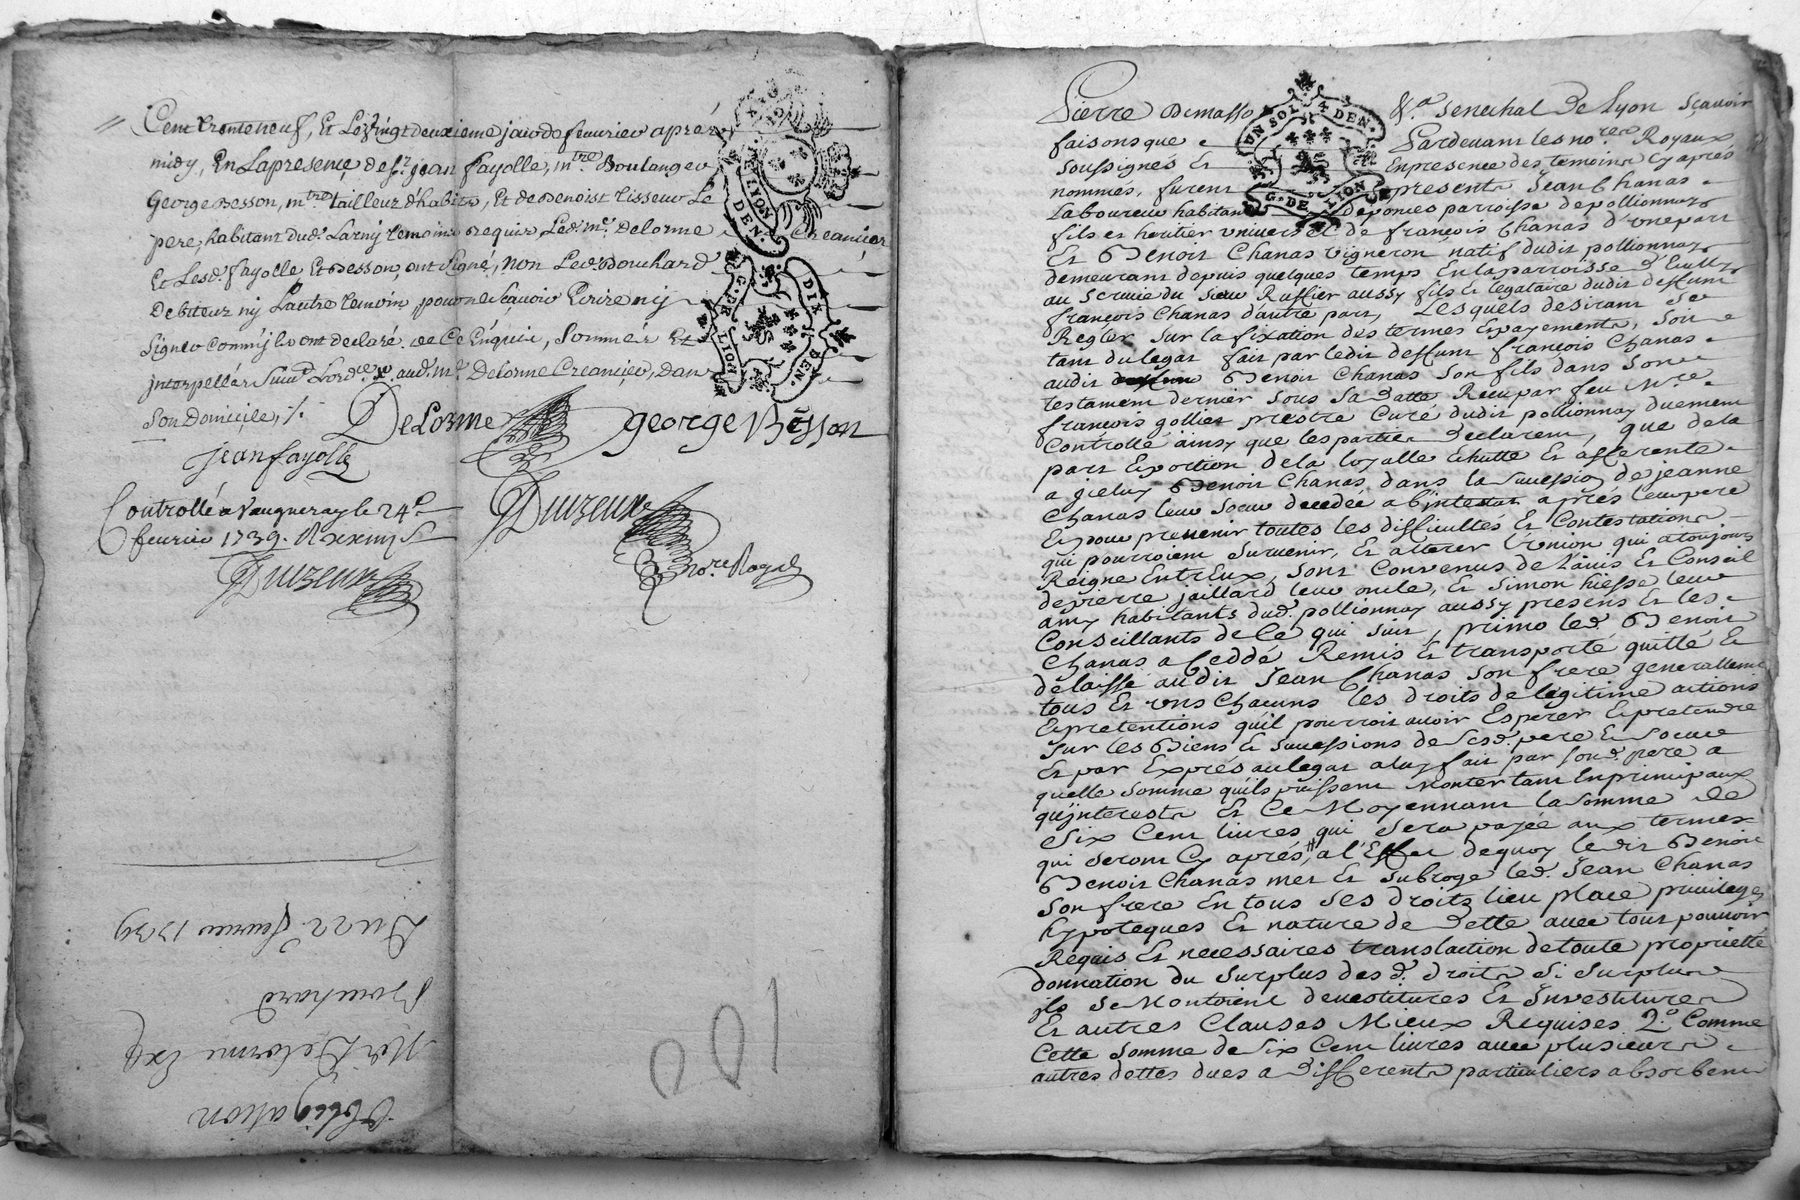 Cent trente neuf, Et Le vingt deuxieme jour de fevrier après
midy, En La presence de Sr. jean fayolle, mtre. Boulanger
George Besson, mtre tailleur d'habits, Et de Benoist tisseur Le
pere, habitant dud. Larny temoins requis, Led. me. Delorme Creancier
Et Lesd. fayolle Et Besson, ont signé, Non Led. Bouchard
Debiteur ny L'autre temoin pour ne sçavoir Ecrire ny
signer Comm'jls ont declaré de Ce Enquis, Sommés Et
jnterpellés suivt. L'ordce. aud. me. Delorme Creancier, Dans
Son Domicile, /.
DeLorme george Besson
jean fayolle
Controllé a Vaugneray le 24e
fevrier 1739. R
nore Royal
Du 22e fevrier 1739
Bouchard
Obligation
Mr Delorme
201
UN SOL 4 DEN.
G. DE LION
LYON
DEN.
G. DE LION
DIX DEN.
Pierre Demasso &a. Senechal De Lyon, sçavoir
faisons que Pardevant les nores Royaux
soussignés Et En presence des temoins Cy aprés
nommés, furent presents Jean Chanas
Laboureur habitant parroisse de pollionnay
fils et heritier universel de françois Chanas d'une part
Et Benoit Chanas vigneron natif dudit pollionnay
demeurant depuis quelques temps En la parroisse d'Eculy
au service du Sieur Ruffier aussy fils Et legataire dudit deffunt
françois Chanas d'autre part, Lesquels desirant se
Regler sur la fixation des termes Et payements, soit
tant du legat fait par ledit deffunt françois Chanas
audit Benoit Chanas son fils dans son
testament dernier sous sa datte Receu par feu Mre
françois gollier prestre Curé dudit pollionnay duement
Controllé ainsy que les parties Declarent, que de la
part Et portion de la loyalle Echutte Et afferente
a jceluy Benoit Chanas dans la succession de jeanne
Chanas leur soeur decedée ab intestat aprés leur pere
Et pour prevenir toutes les difficultés Et Contestations
qui pourroient survenir, Et alterer l'Union qui a toujours
Reigné Entr'Eux, sont Convenus de l'avis Et Conseil
de pierre jaillard leur oncle, Et Simon hiesse leur
amy habitants dud. pollionnay aussy presens Et les
Conseillants de Ce qui suit, primo led. Benoit
Chanas a Ceddé Remis Et transporté quitté Et
delaissé audit Jean Chanas son frere generallement
tous Et uns Chacuns les droits de legitime actions
Et pretentions qu'il pourroit avoir Esperer Et pretendre
sur les Biens Et successions de Sesd. pere Et soeur
Et par Exprés au legat a luy fait par sond. pere a
quelle somme qu'ils puissent monter tant En principaux
qu'jnterests Et Ce Moyennant la somme de
Six Cent livres qui sera payée aux termes
qui seront Cy aprés, a l'Effet de quoy ledit Benoit
Benoit Chanas met Et subroge led. Jean Chanas
son frere En tous ses droits lieu place privileges
hypoteques Et nature de Dette avec tout pouvoir
Requis Et necessaires translaction de toute proprietté
donnation du surplus desd. droits si surplus
ils se Montoient devestitures Et Jnvestitures
Et autres Clauses Mieux Requises. 2o. Comme
Cette somme de Six Cent livres avec plusieurs
autres dettes dues a differents particuliers absorbent